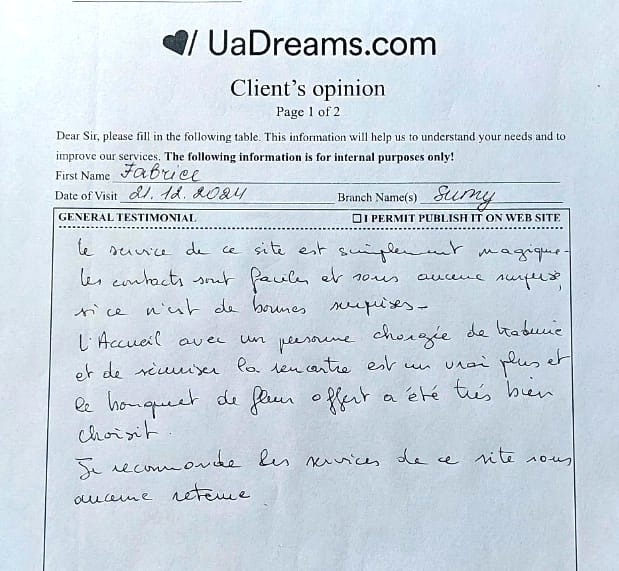 / UaDreams.com
Client's opinion
Page 1 of 2
Dear Sir, please fill in the following table. This information will help us to understand your needs and to
improve our services. The following information is for internal purposes only!
First Name Fabrice
Date of Visit 21.12.2024 Branch Name(s) Sumy
GENERAL TESTIMONIAL ☐ I PERMIT PUBLISH IT ON WEB SITE
le service de ce site est simplement magique.
les contacts sont faciles et sous aucune surprise,
si ce n'est de bonnes surprises -
L'Accueil avec un personne chargée de traduire
et de sécuriser la rencontre est un vrai plus et
le bouquet de fleur offert a été très bien
choisit.
Je recommande les services de ce site sous
aucune retenue